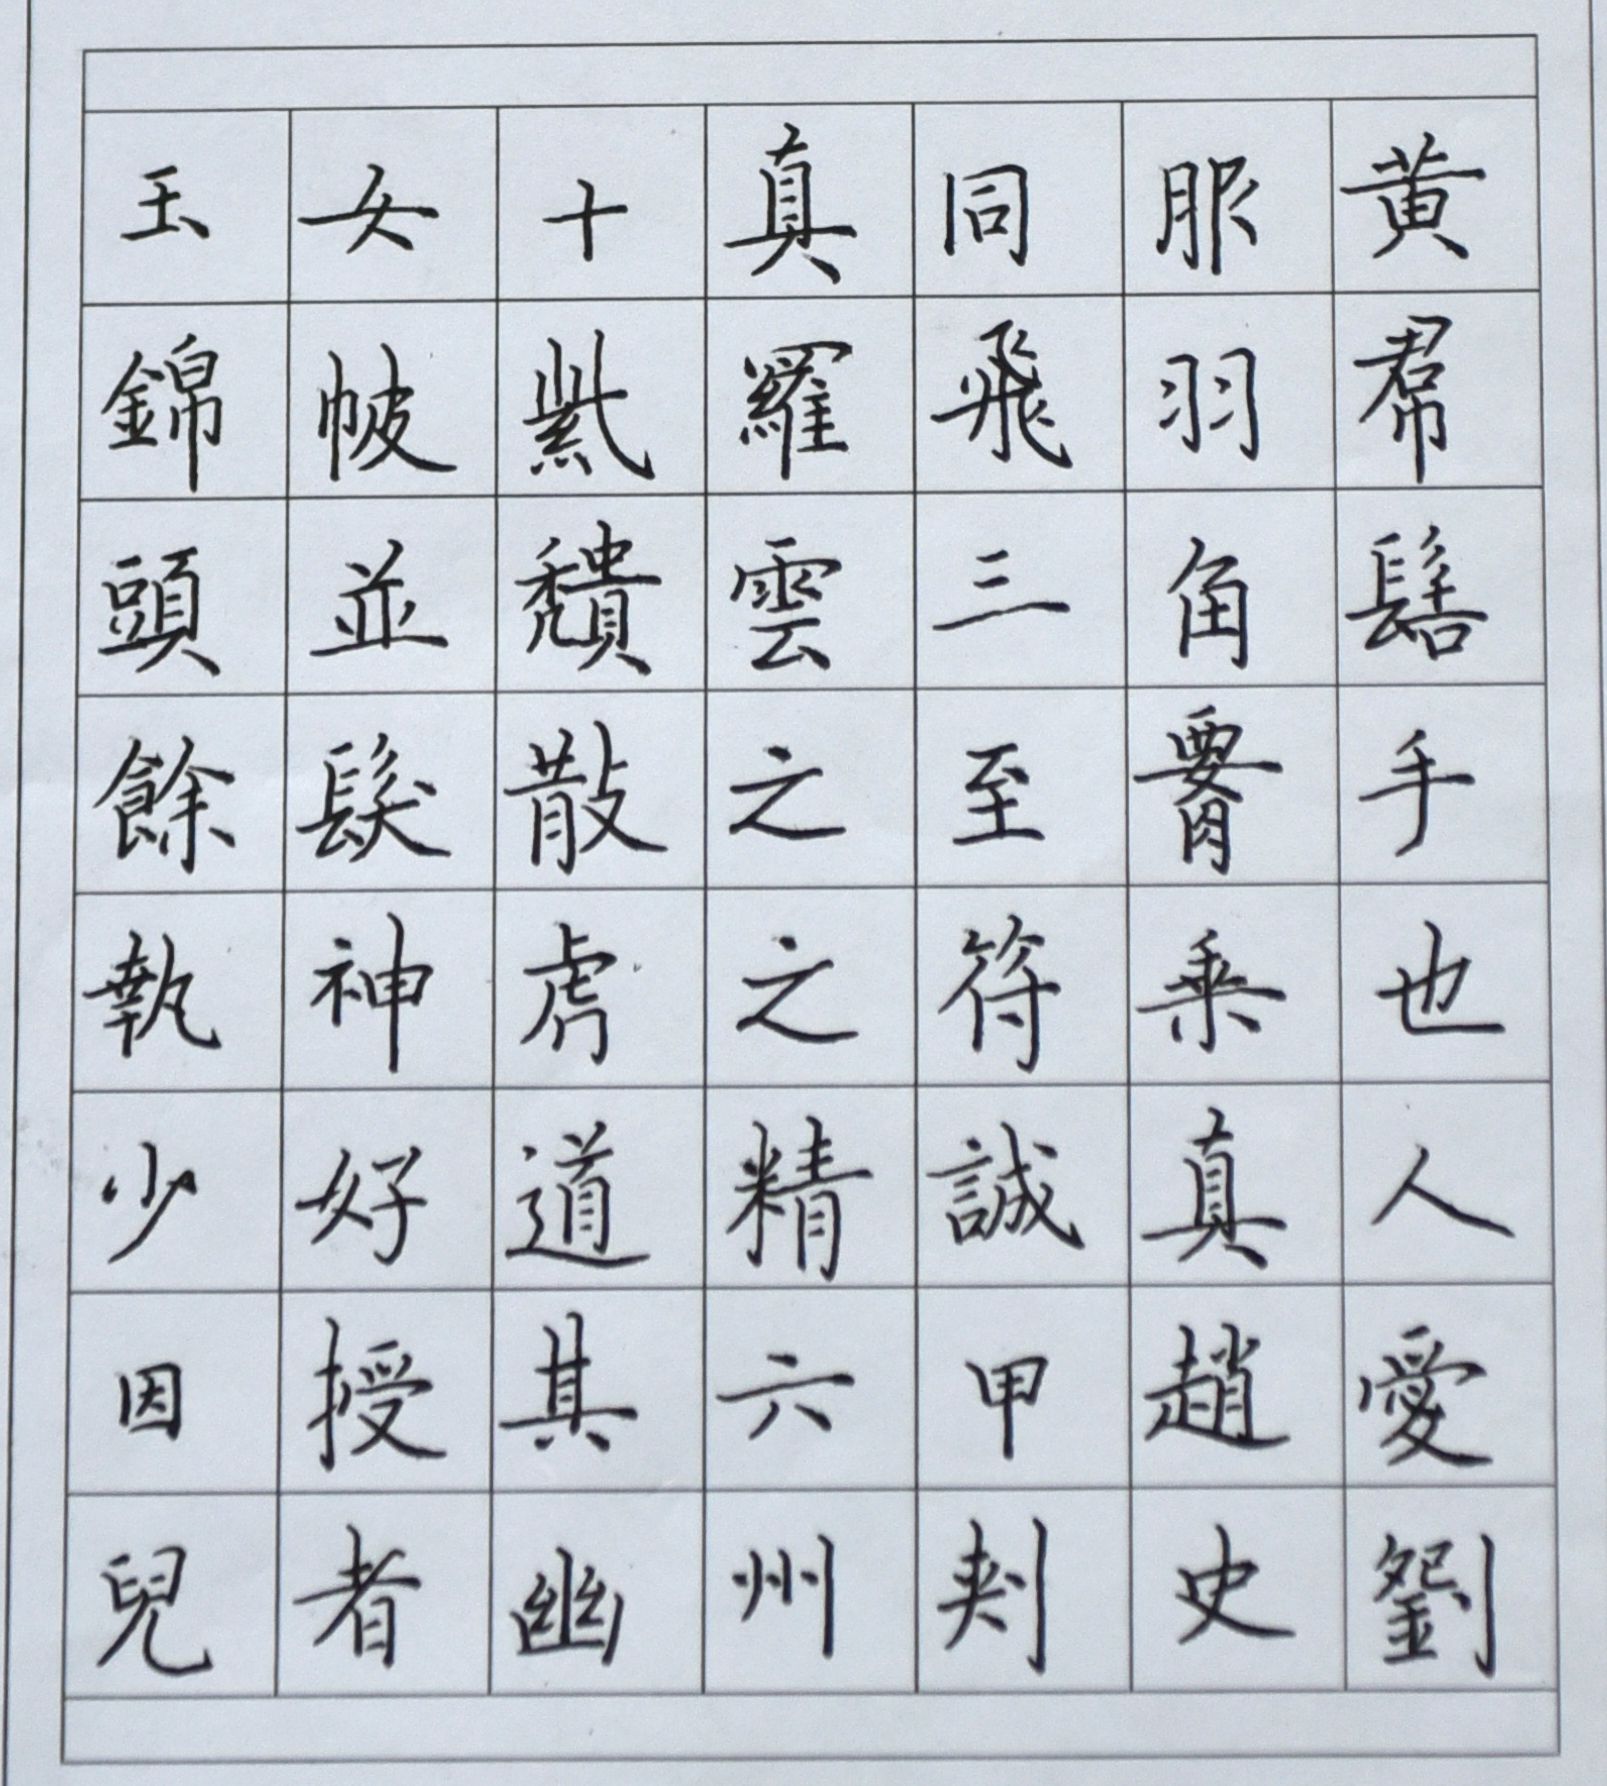 玉女十真同服黄
錦帔紫羅飛羽帬
頭並頽雲三角髻
餘髮散之至腰手
執神虎之符乗也
少好道精誠真人
因授其六甲趙愛
兒者幽州刾史劉